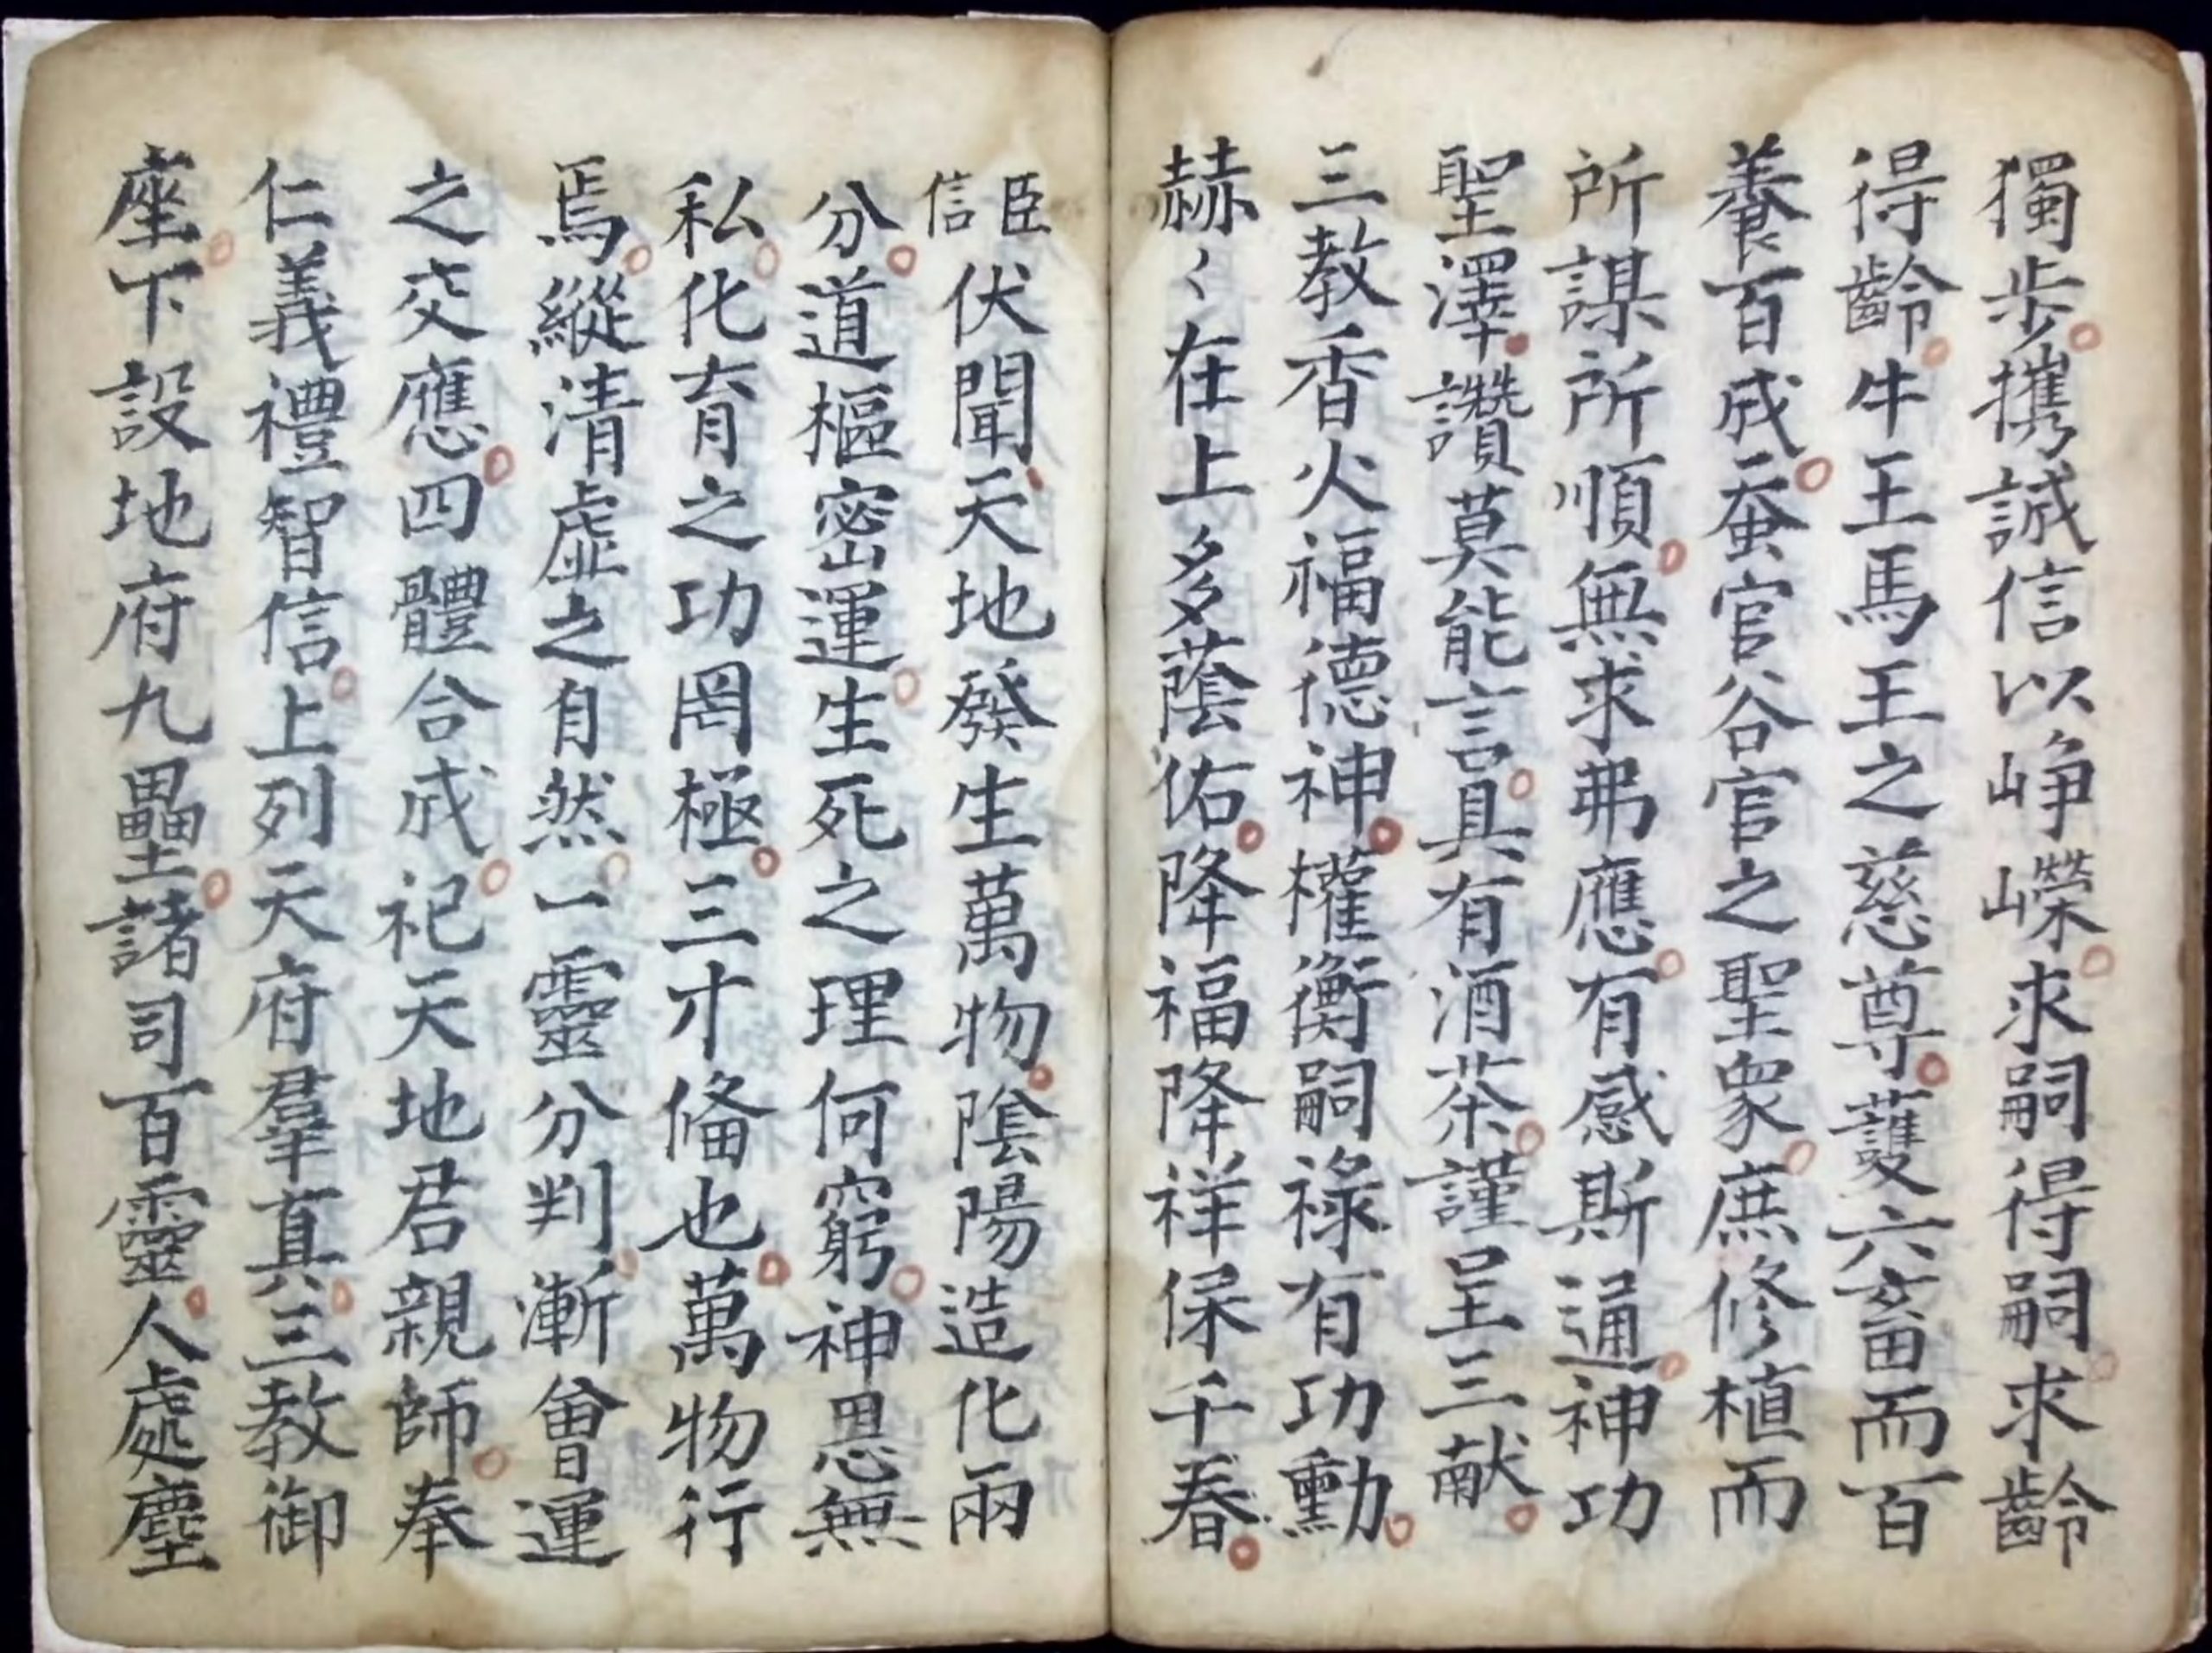 獨步攜誠信以崢嶸求嗣得嗣求齡
得齡牛王馬王之慈尊護六畜而百
養百成蚕官谷官之聖衆庶修植而
所謀所順無求弗應有感斯通神功
聖澤讚莫能言具有酒茶謹呈三献
三教香火福德神權衡嗣祿有功勳
赫〻在上多蔭佑降福降祥保千春
臣信伏聞天地發生萬物陰陽造化兩
分道樞密運生死之理何窮神恩無
私化育之功罔極三才俻也萬物行
焉縱清虛之自然一靈分判漸會運
之交應四體合成祀天地君親師奉
仁義禮智信上列天府羣真三教御
座下設地府九壘諸司百靈人處塵